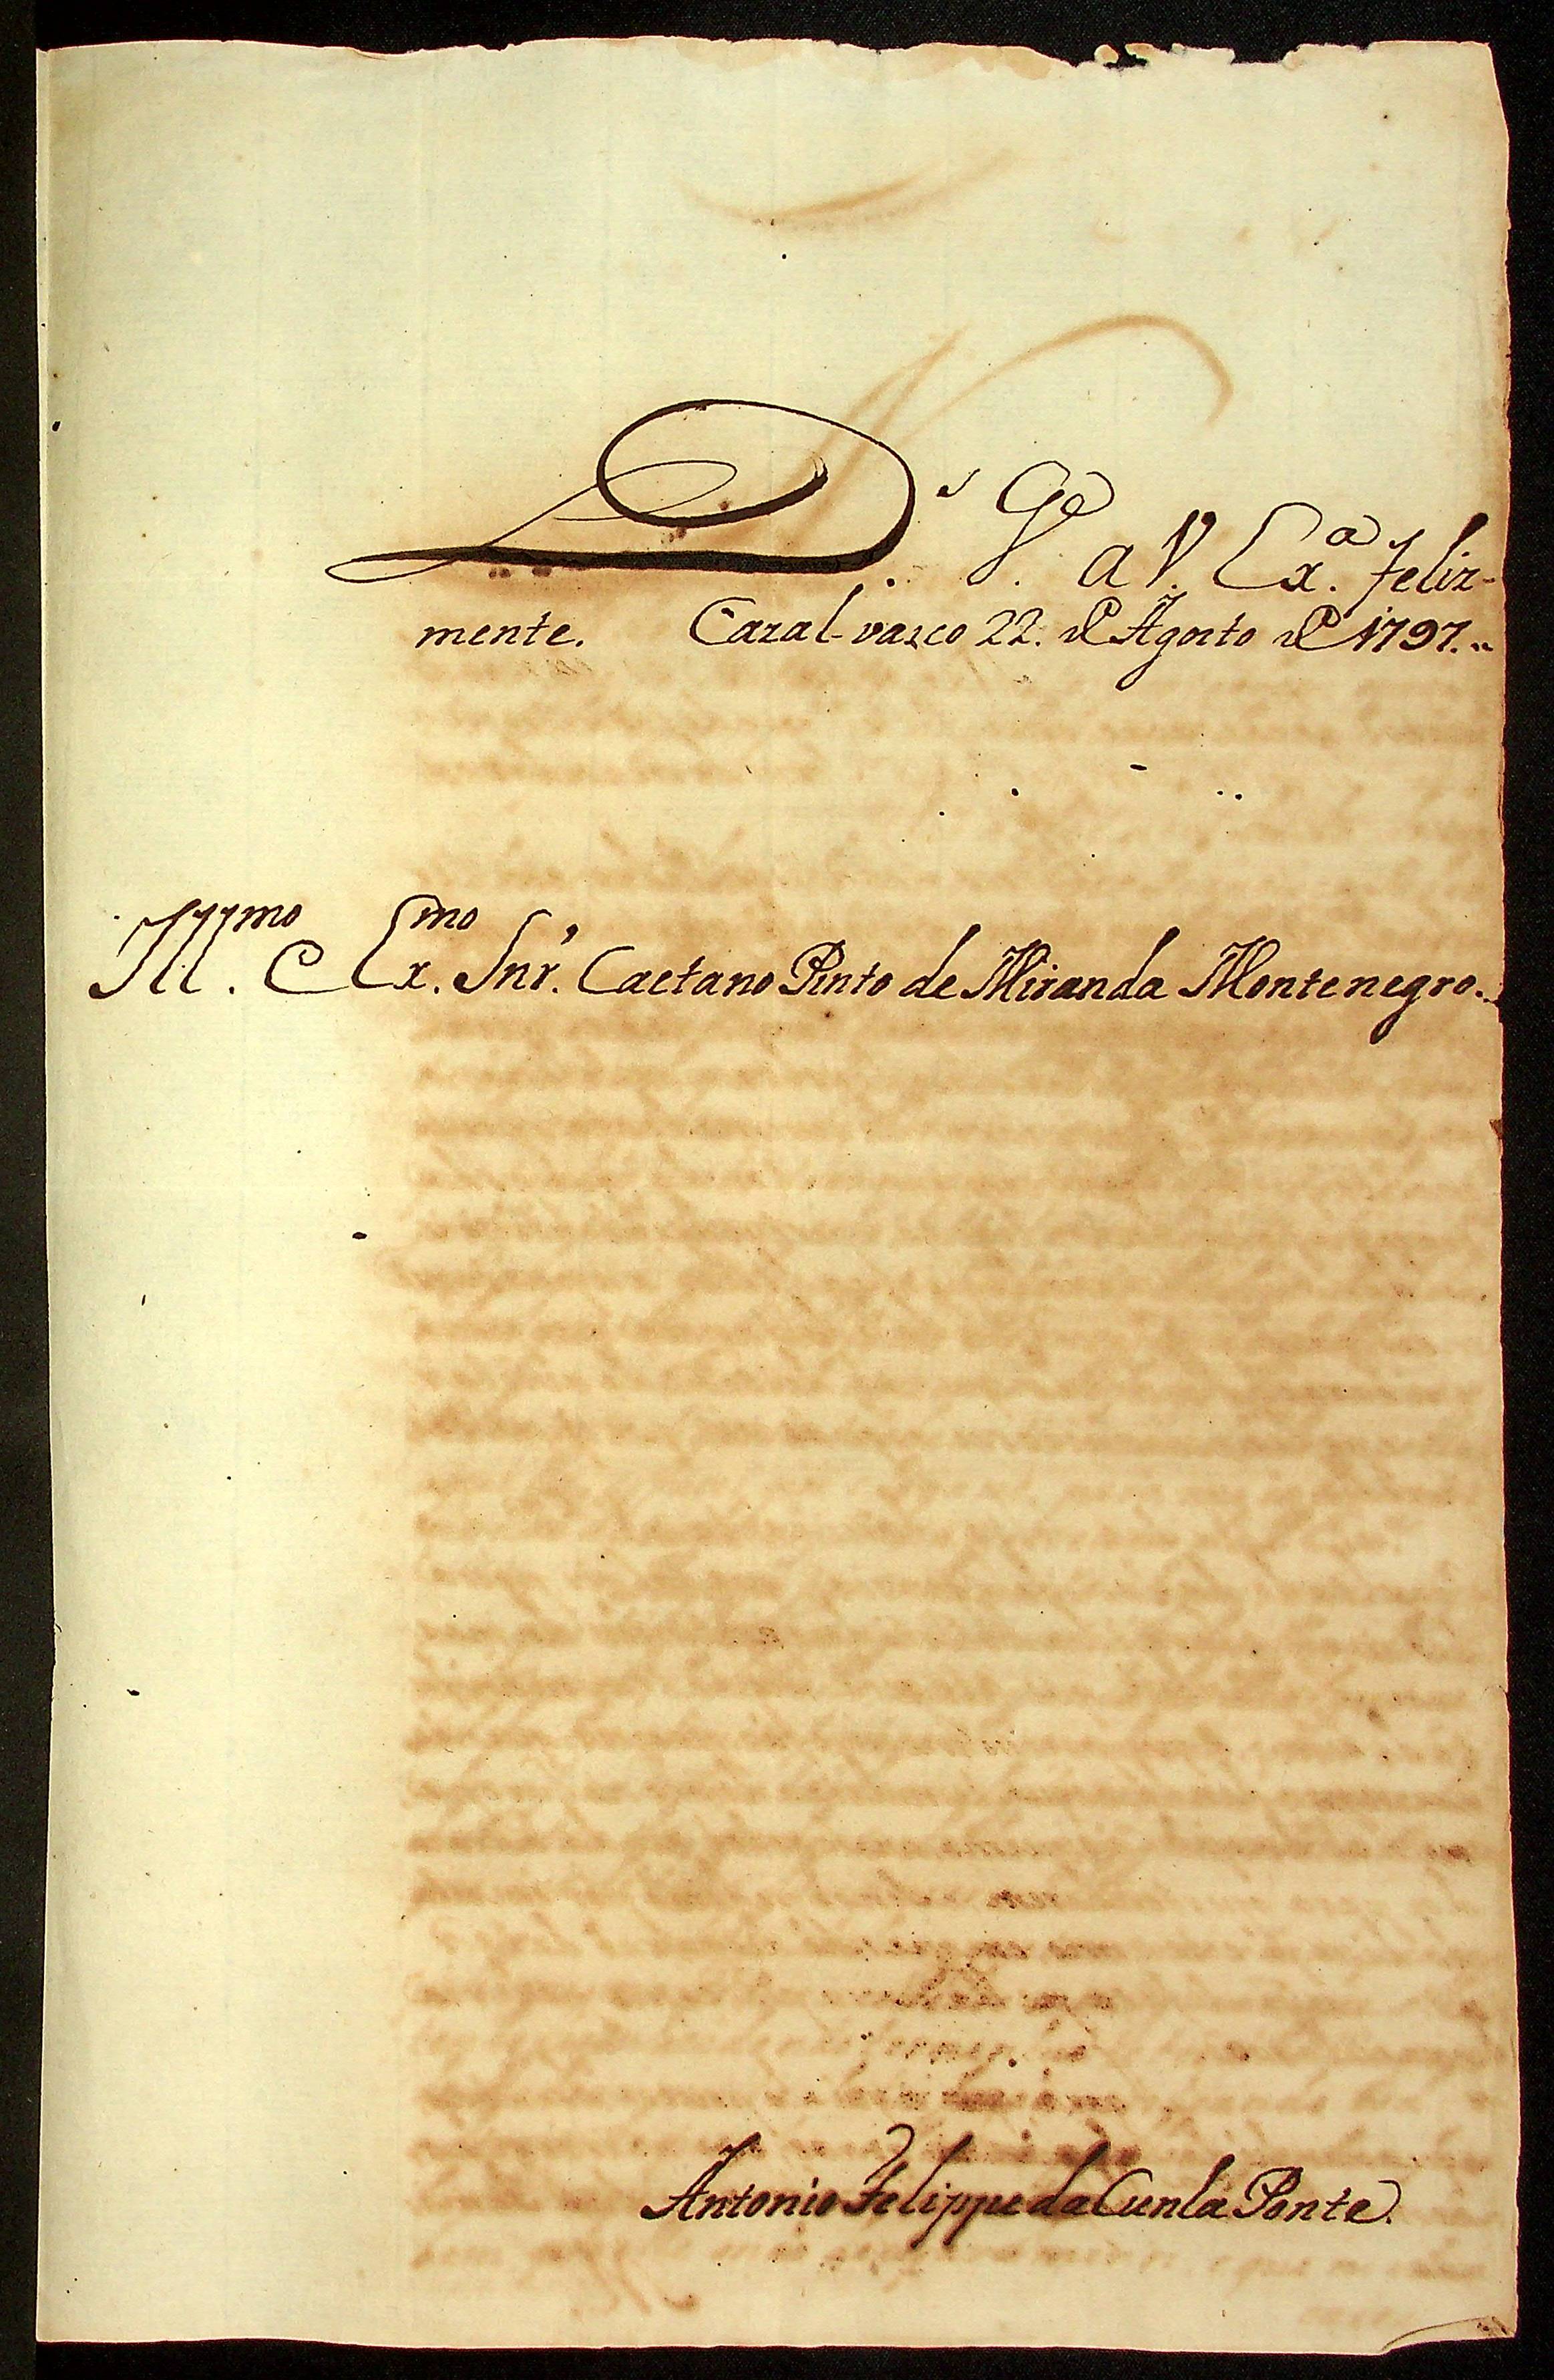 D.s G.e a V. Ex.a feliz-
mente. Cazal-vasco 22. de Agosto de 1797.
Ill.mo e Ex.mo Snr. Caetano Pinto de Miranda Montenegro.
Antonio Felippe da Cunha Ponte.